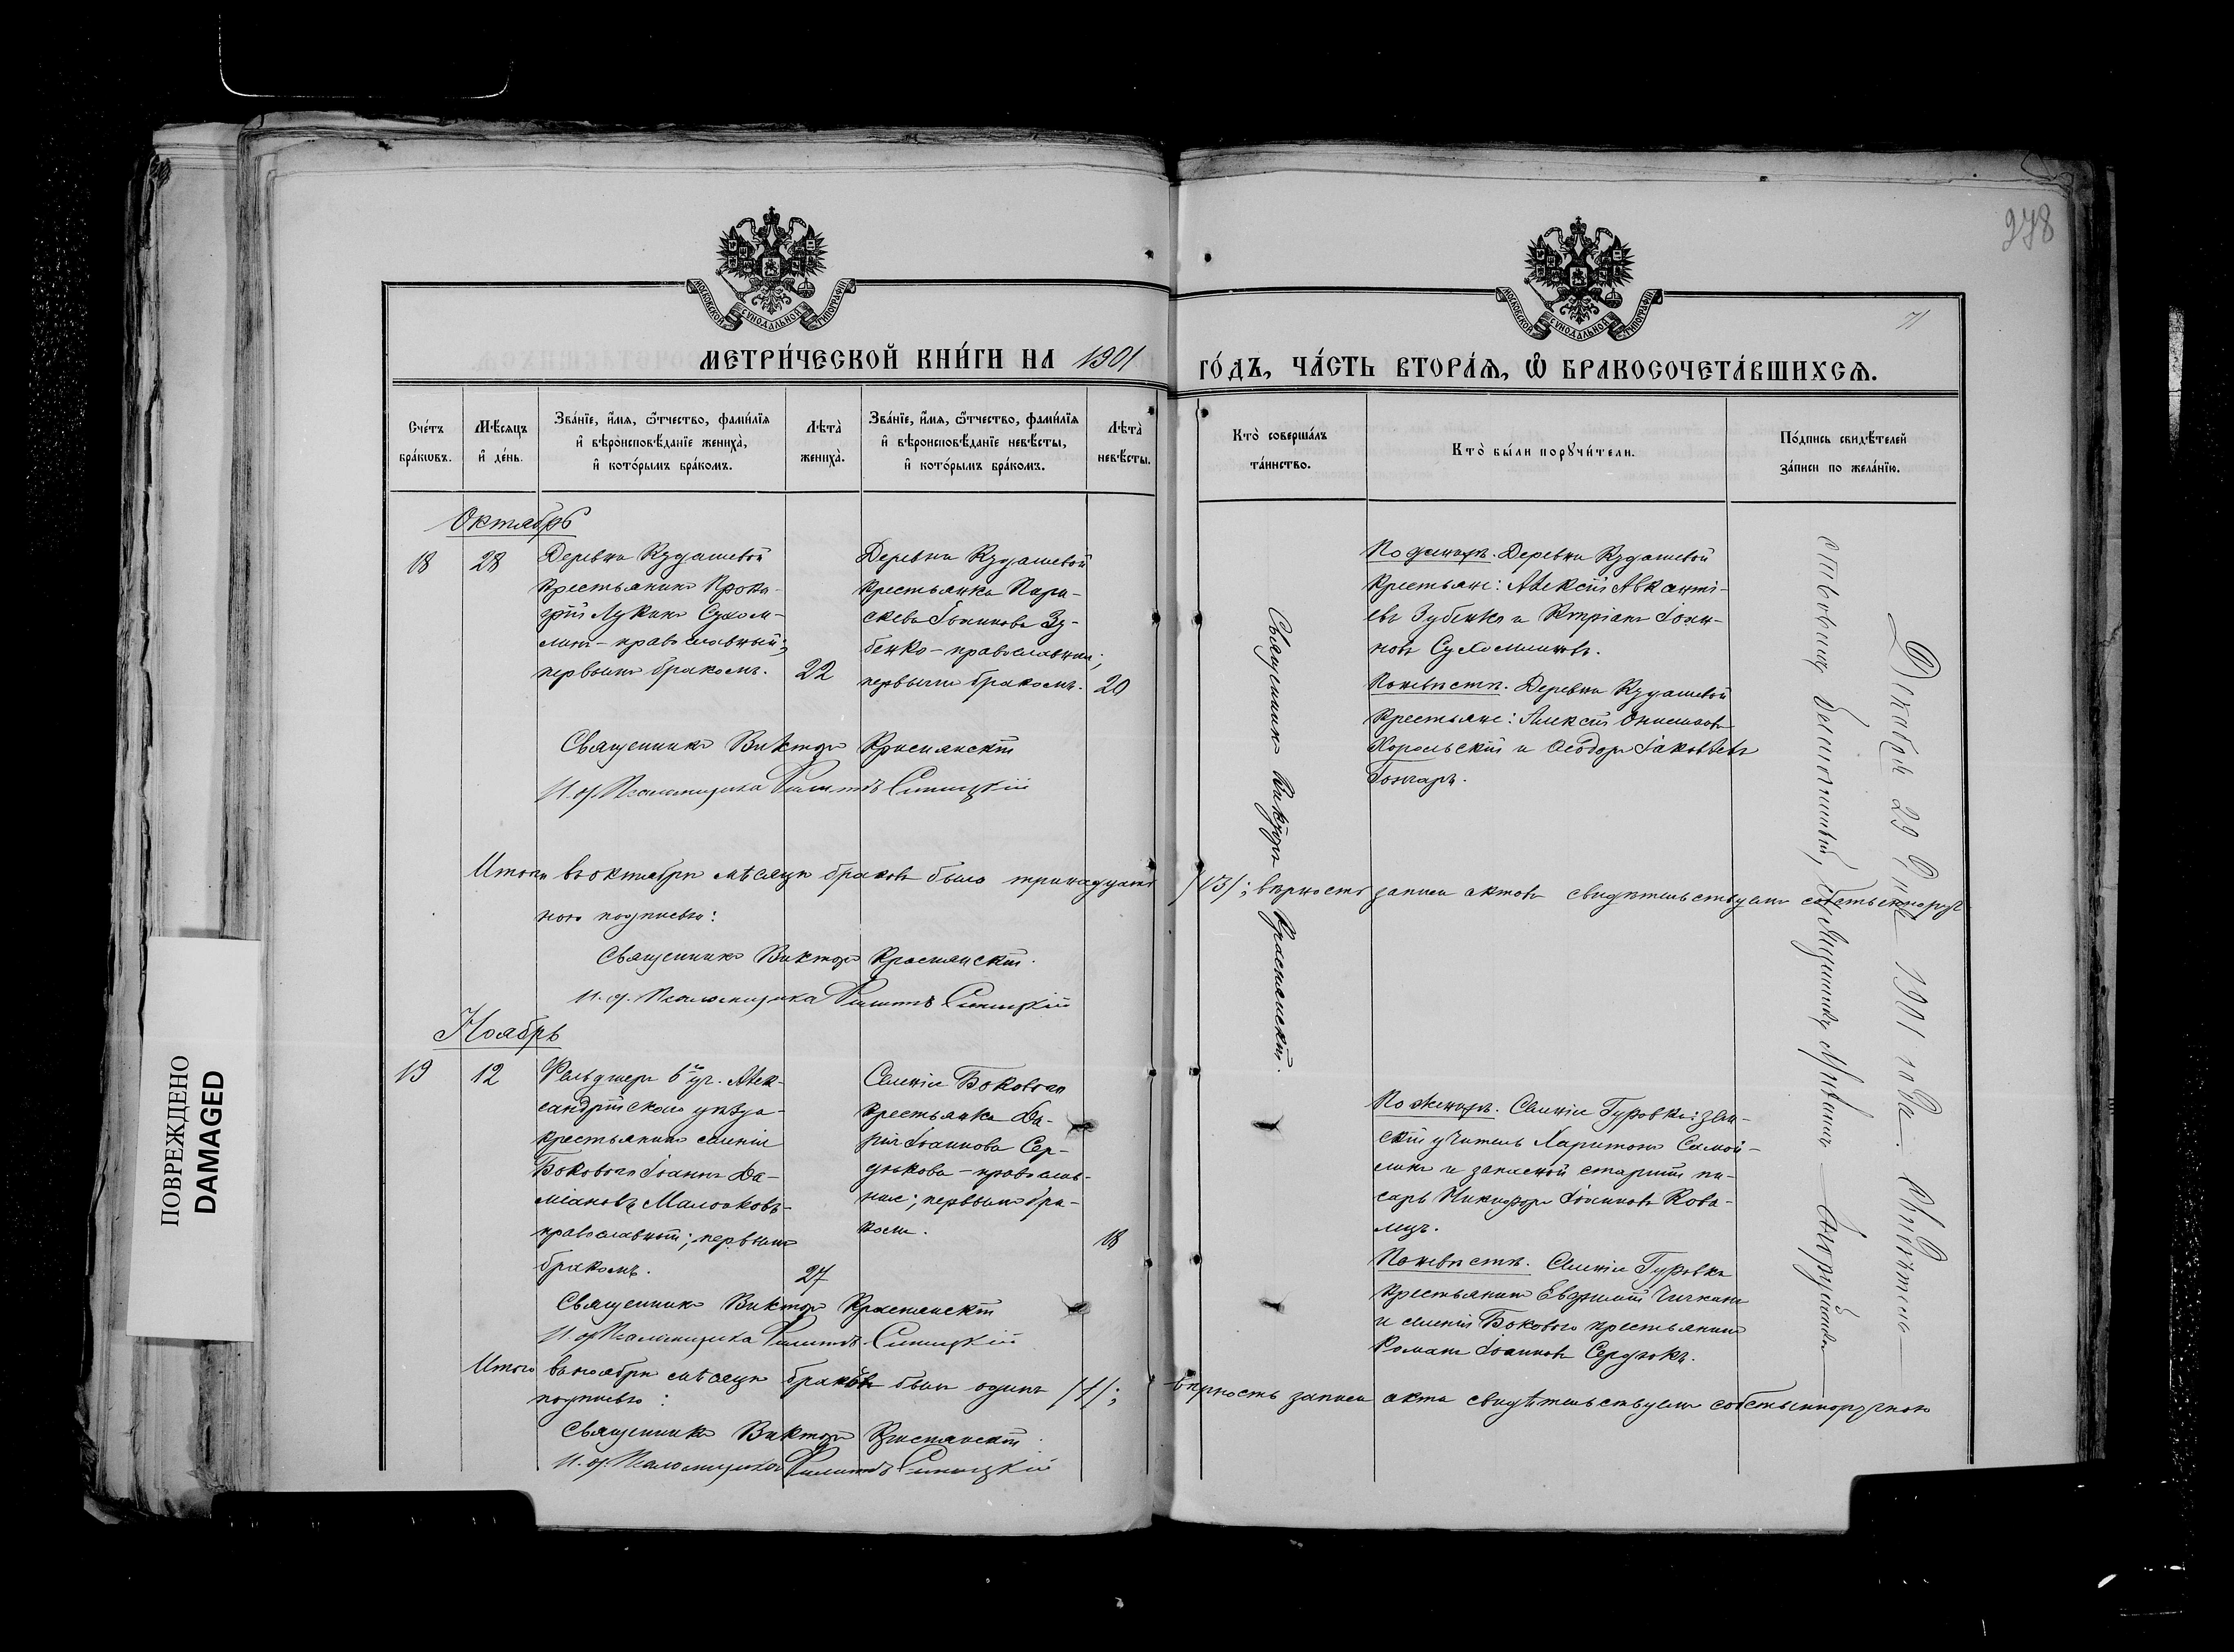 278
71
МОСКОВСКОЙ СѴНОДАЛЬНОЙ ТИПОГРАФІИ
МОСКОВСКОЙ СѴНОДАЛЬНОЙ ТИПОГРАФІИ
МЕТРИ́ЧЕСКОЙ КНИ́ГИ НА 1901 ГО́ДЪ, ЧА́СТЬ ВТОРА́Я, Ѡ҆ БРАКОСОЧЕТА́ВШИХСѦ.
Сче́тъ бра́кѡвъ.
Мѣ́сяцъ и҆ де́нь.
Зва́нїе, и҆́мя, ѻ҆́тчество, фами́лїя и҆ вѣроисповѣ́данїе жениха̀, и҆ кото́рымъ бра́комъ.
Лѣта̀ жениха̀.
Зва́нїе, и҆́мя, ѻ҆́тчество, фами́лїя и҆ вѣроисповѣ́данїе невѣ́сты, и҆ кото́рымъ бра́комъ.
Лѣта̀ невѣ́сты.
Кто̀ соверша́лъ та́инство.
Кто̀ бы́ли порꙋчи́тели.
По́дпись свидѣ́телей за́писи по жела́нїю.
Октябрь
18
28
Деревни Кудашевой
крестьянинъ Проко-
фій Лукинъ Сухом-
линъ - православный;
первымъ бракомъ.
22
Деревни Кудашевой
крестьянка Пара-
скева Іоаннова Зу-
бенко - православная;
первымъ бракомъ.
20
По женихѣ. Деревни Кудашевой
крестьяне: Алексій Авксенті-
евъ Зубенко и Кипріанъ Іоан-
новъ Сухомлиновъ.
По невѣстѣ. Деревни Кудашевой
крестьяне: Алексій Онисимовъ
Хорольскій и Ѳеодоръ Іаковлевъ
Гончаръ.
Священникъ Викторъ Краснянскій
И. об. Псаломщика Филиппъ Синицкій
Итого въ октябрѣ мѣсяцѣ браковъ было тринадцать /13/; вѣрность записи актовъ свидѣтельствуемъ собственноруч-
ною подписью:
Священникъ Викторъ Краснянскій.
И. об. Псаломщика Филиппъ Синицкій
Ноябрь
19
12
Фельдшеръ 6го уч. Алек-
сандрійскаго уѣзда
крестьянинъ селенія
Боковаго Іоаннъ Да-
міановъ
православный; первымъ
бракомъ.
27
Селенія Боковаго
крестьянка Да-
рія Іоаннова Сер-
дюкова - православ-
ная; первымъ бра-
комъ.
18
По женихѣ. Селенія Гуровки: зем-
скій учитель Харитонъ Самой-
ленко и запасной старшій пи-
сарь Никифоръ Іоанновъ Кова-
лец.
По невѣстѣ. Селенія Гуровки
крестьянинъ Евфимій Чичкань
и селенія Боковаго крестьянинъ
Романъ Іоанновъ Сердюкъ.
Священникъ Викторъ Краснянскій
И. об. Псаломщика Филиппъ Синицкій
Итого въ ноябрѣ мѣсяцѣ браковъ былъ одинъ /1/; вѣрность записи акта свидѣтельствуемъ собственноручною
подписью:
Священникъ Викторъ Краснянскій.
И. об. Псаломщика Филиппъ Синицкій
Священникъ Викторъ Краснянскій.
Декабря 29 дня 1901 года.
ПОВРЕЖДЕНО
DAMAGED